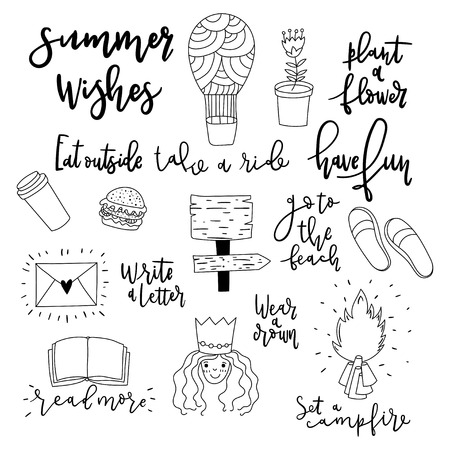 Summer
Wishes
plant
a
flower
Eat outside
take a ride
have fun
go to
the
beach
Write
a letter
Wear
a
crown
read more
Set a
campfire